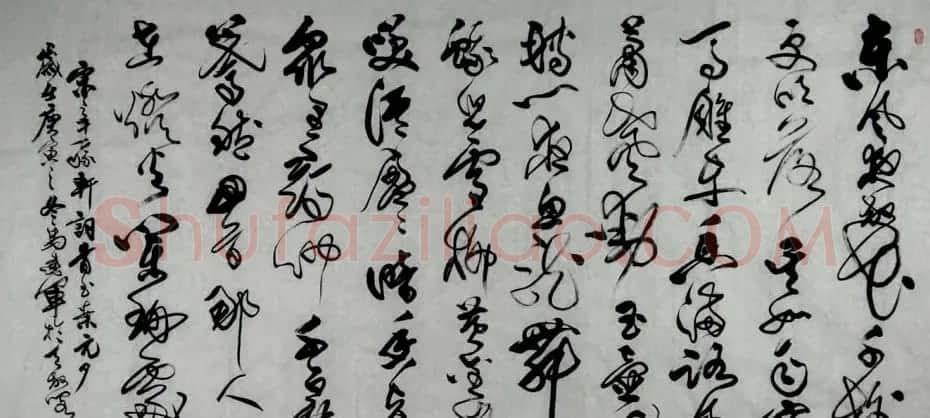 東風夜放花千樹
更吹落星如雨
馬雕車香滿路
簫聲動玉壺
轉一夜魚龍舞
蛾兒雪柳黃金
笑語盈盈暗香去
眾里尋他千百
驀然回首那人
在燈火闌珊處
宋辛稼軒詞青玉案元夕
歲在庚寅之冬
Shufaziliao.COM